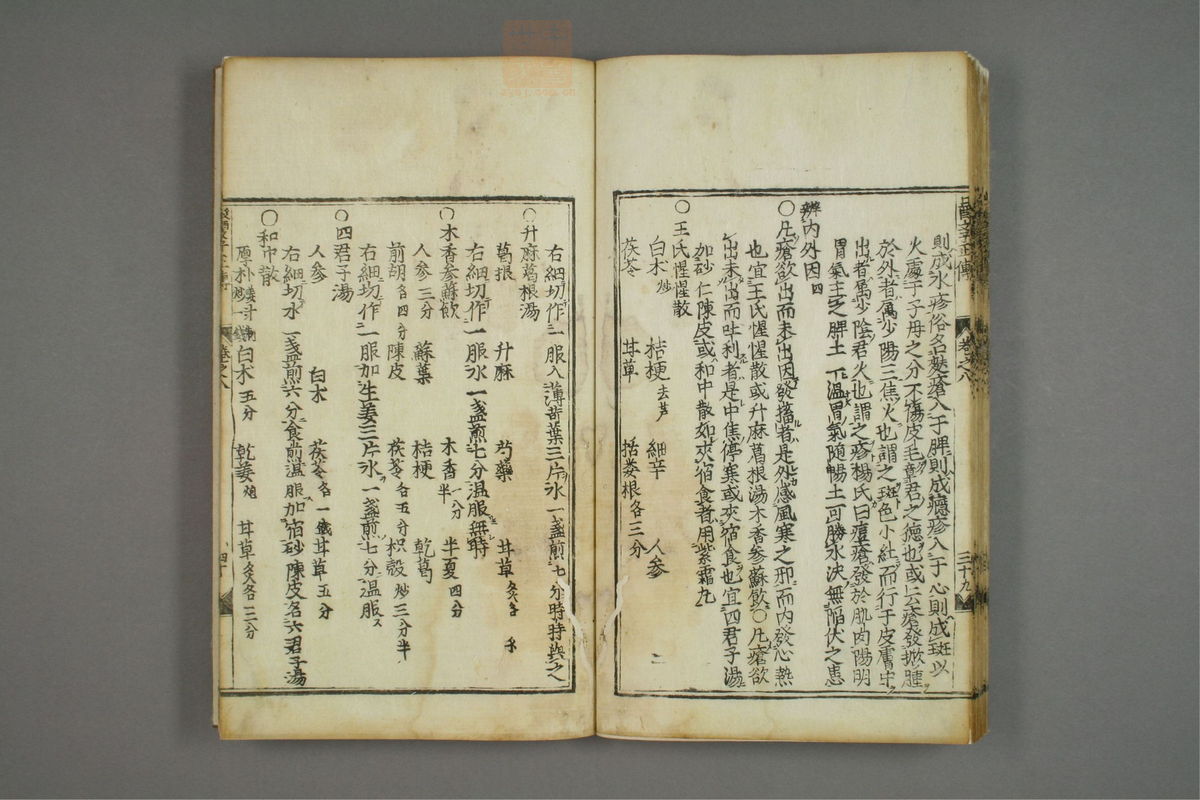 則成水疹俗名麩瘡入于脾則成癮疹入于心則成斑以
火處于子母之分不傷皮毛彰君之德也或云瘡發掀腫
於外者属少陽三焦火也謂之斑色小紅而行于皮膚中
出者属少陰君火也謂之疹楊氏曰痘瘡發於肌肉陽明
胃氣主之脾土一温胃氣随暢土可勝水決無陷伏之患
辨内外因四
〇凡瘡欲出而未出因發搐者是外感風寒之邪而内發心熱
也宜王氏惺惺散或升麻葛根湯木香參蘇飲〇凡瘡欲
出未出而吐利者是中焦停寒或夾宿食也宜四君子湯
加砂仁陳皮或和中散如夾宿食者用紫霜丸
〇王氏惺惺散
白朮炒 桔梗去芦 細辛 人參
茯苓 甘草 括蔞根各三分
右細切作一服入薄苛葉三片水一盞煎七分時時與之
〇升麻葛根湯
葛根 升麻 芍藥 甘草炙各
右細切作一服水一盞煎七分温服無時
〇木香參蘇飲
人參三分 蘇葉 桔梗 乾葛
前胡各四分 陳皮 茯苓各五分 枳殼炒三分半
木香一分半 半夏四分
右細切作一服加生姜三片水一盞煎七分温服
〇四君子湯
人參 白朮 茯苓各一錢 甘草五分
右細切水一盞煎六分食前温服加宿砂陳皮名六君子湯
〇和中散
厚朴姜汁制炒一錢 白朮五分 乾姜炮 甘草炙各三分
醫學正傳 卷之八 三十九
卷之八 四十